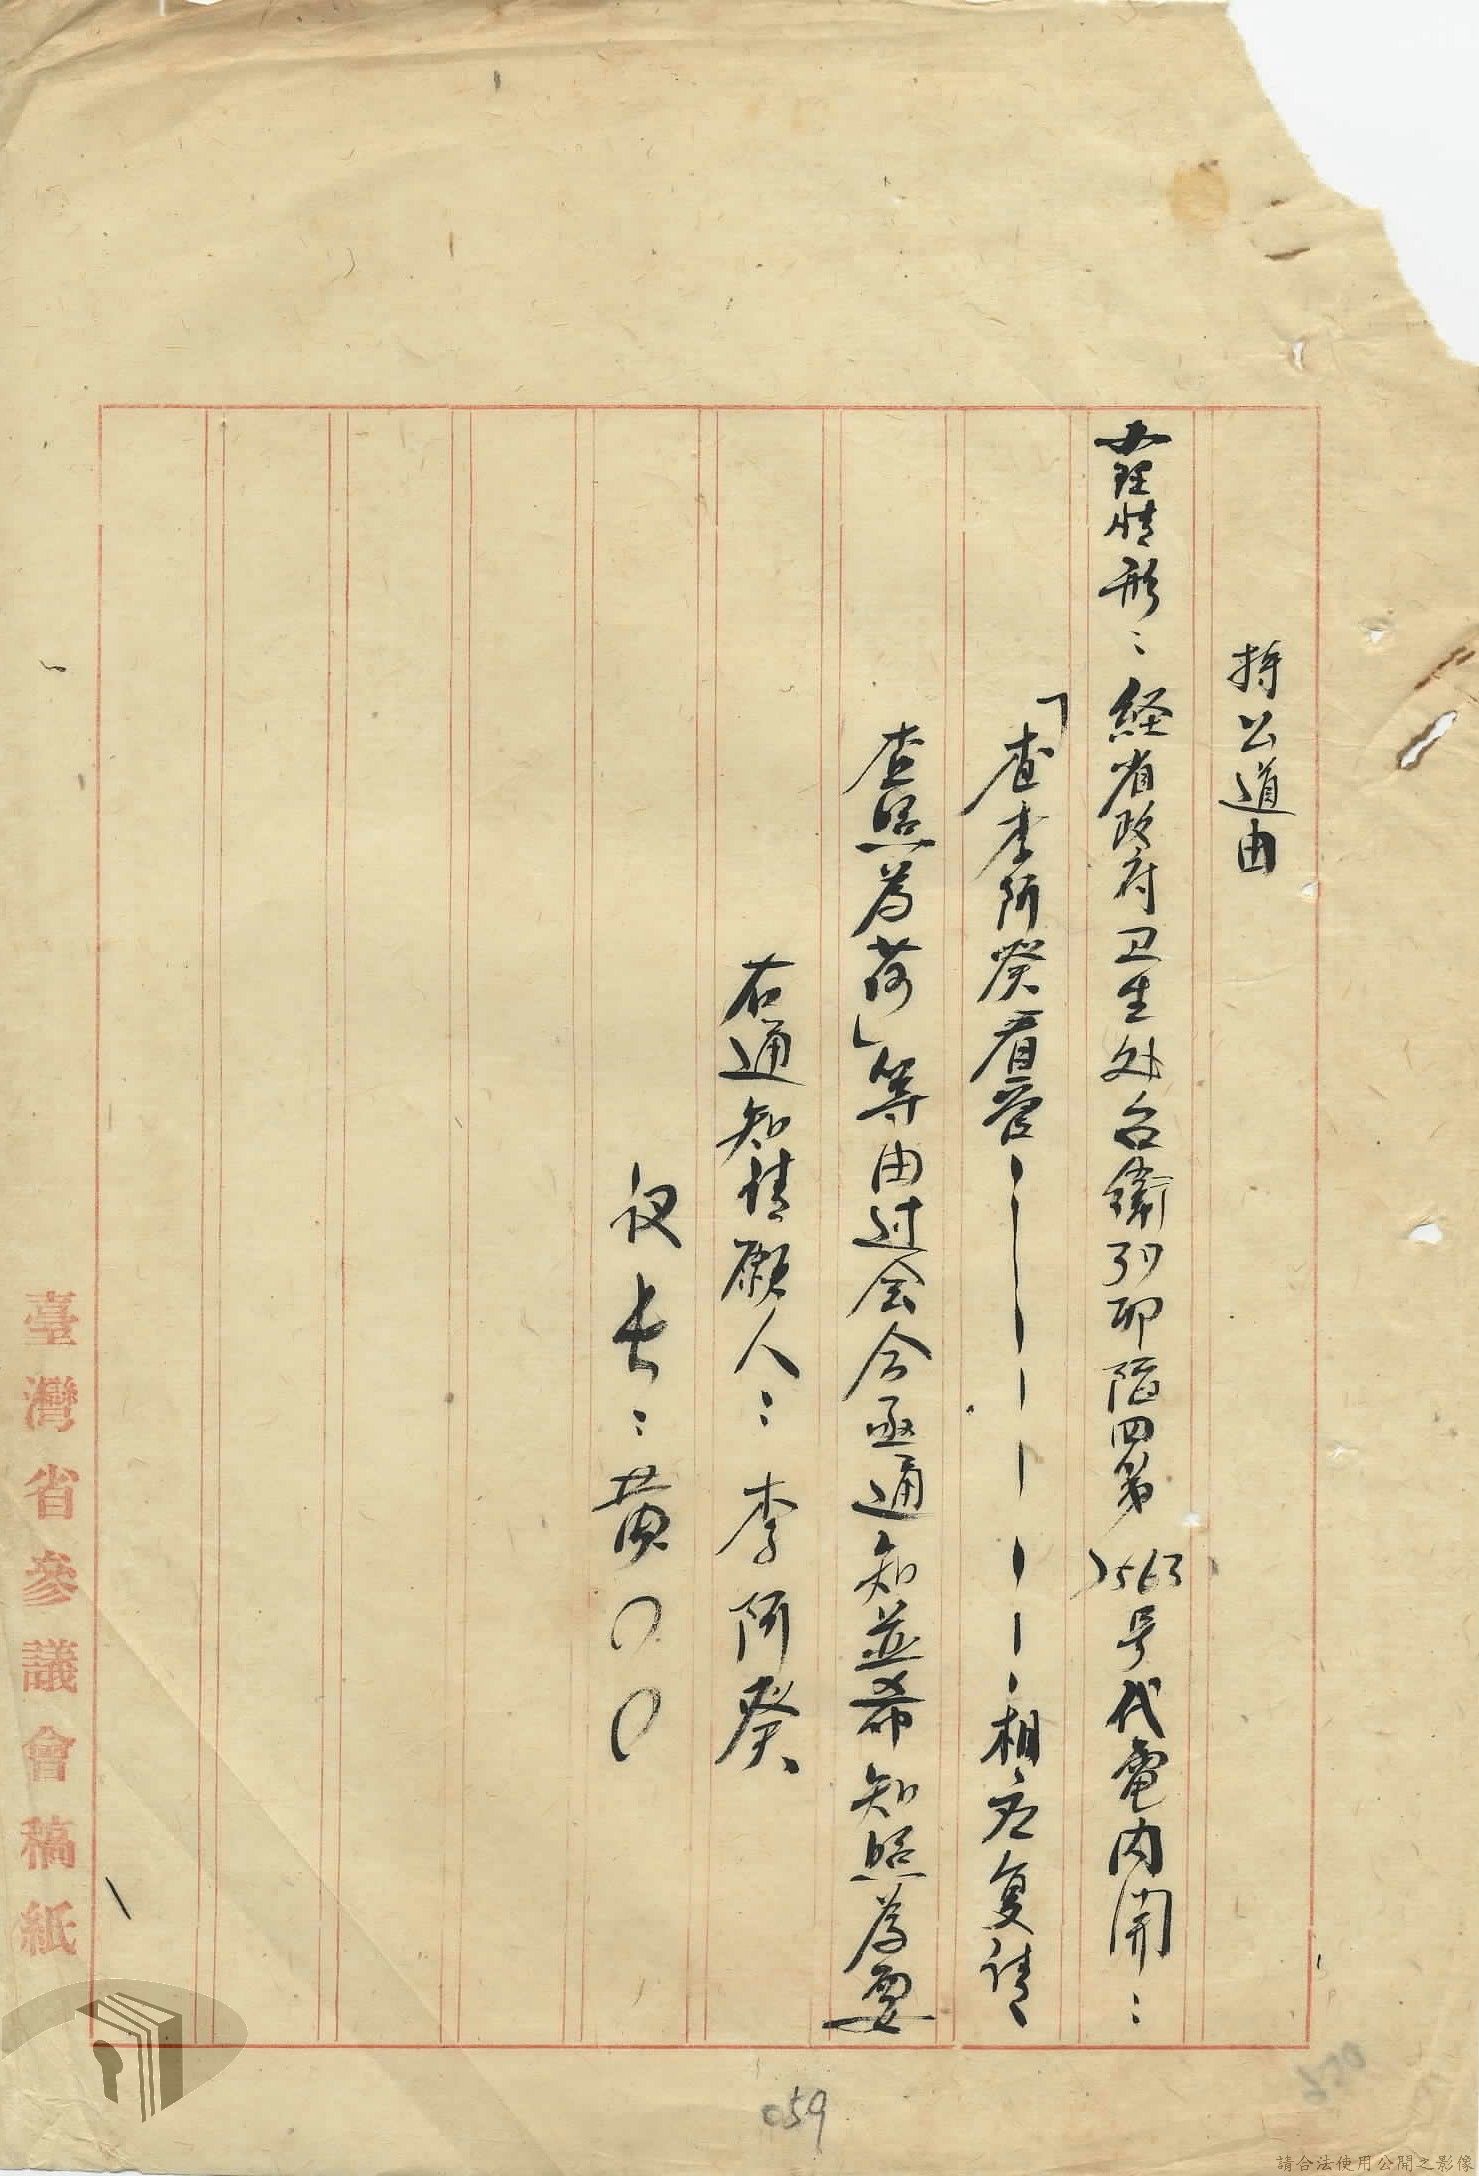 持公道由
办理情形：経省政府卫生处台衛列卯陷四第1563号代電内開：
「查李阿癸看管———————相应复请
查照為荷」等由过会合函通知並希知照為要
右通知情願人：李阿癸
议长：黄〇〇
臺灣省參議會稿紙
059
請合法使用公開之影像